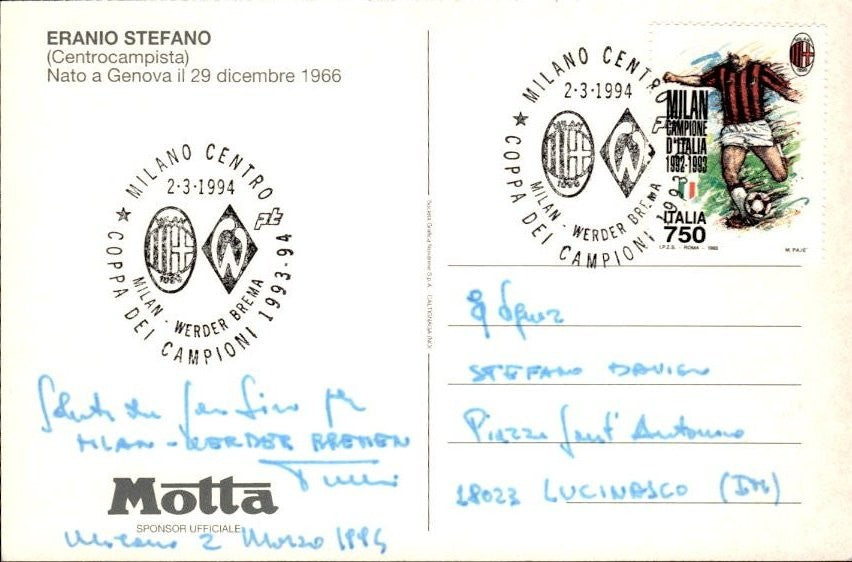 ERANIO STEFANO
(Centrocampista)
Nato a Genova il 29 dicembre 1966
MILANO CENTRO
2-3-1994
pt
1899
MILAN - WERDER BREMA
COPPA DEI CAMPIONI 1993-94
Saluti da San Siro per
MILAN - WERDER BREMEN
Motta
SPONSOR UFFICIALE
Milano 2 Marzo 1994
Società Grafica Novarese S.p.A.
MILANO CENTRO
2-3-1994
1899
MILAN - WERDER BREMA
COPPA DEI CAMPIONI 199
MILAN
CAMPIONE
D'ITALIA
1992-1993
ITALIA
750
I.P.Z.S. - ROMA - 1993
M. PAJE'
STEFANO
Piazza Sant' Antonino
18023 LUCINASCO (IM)